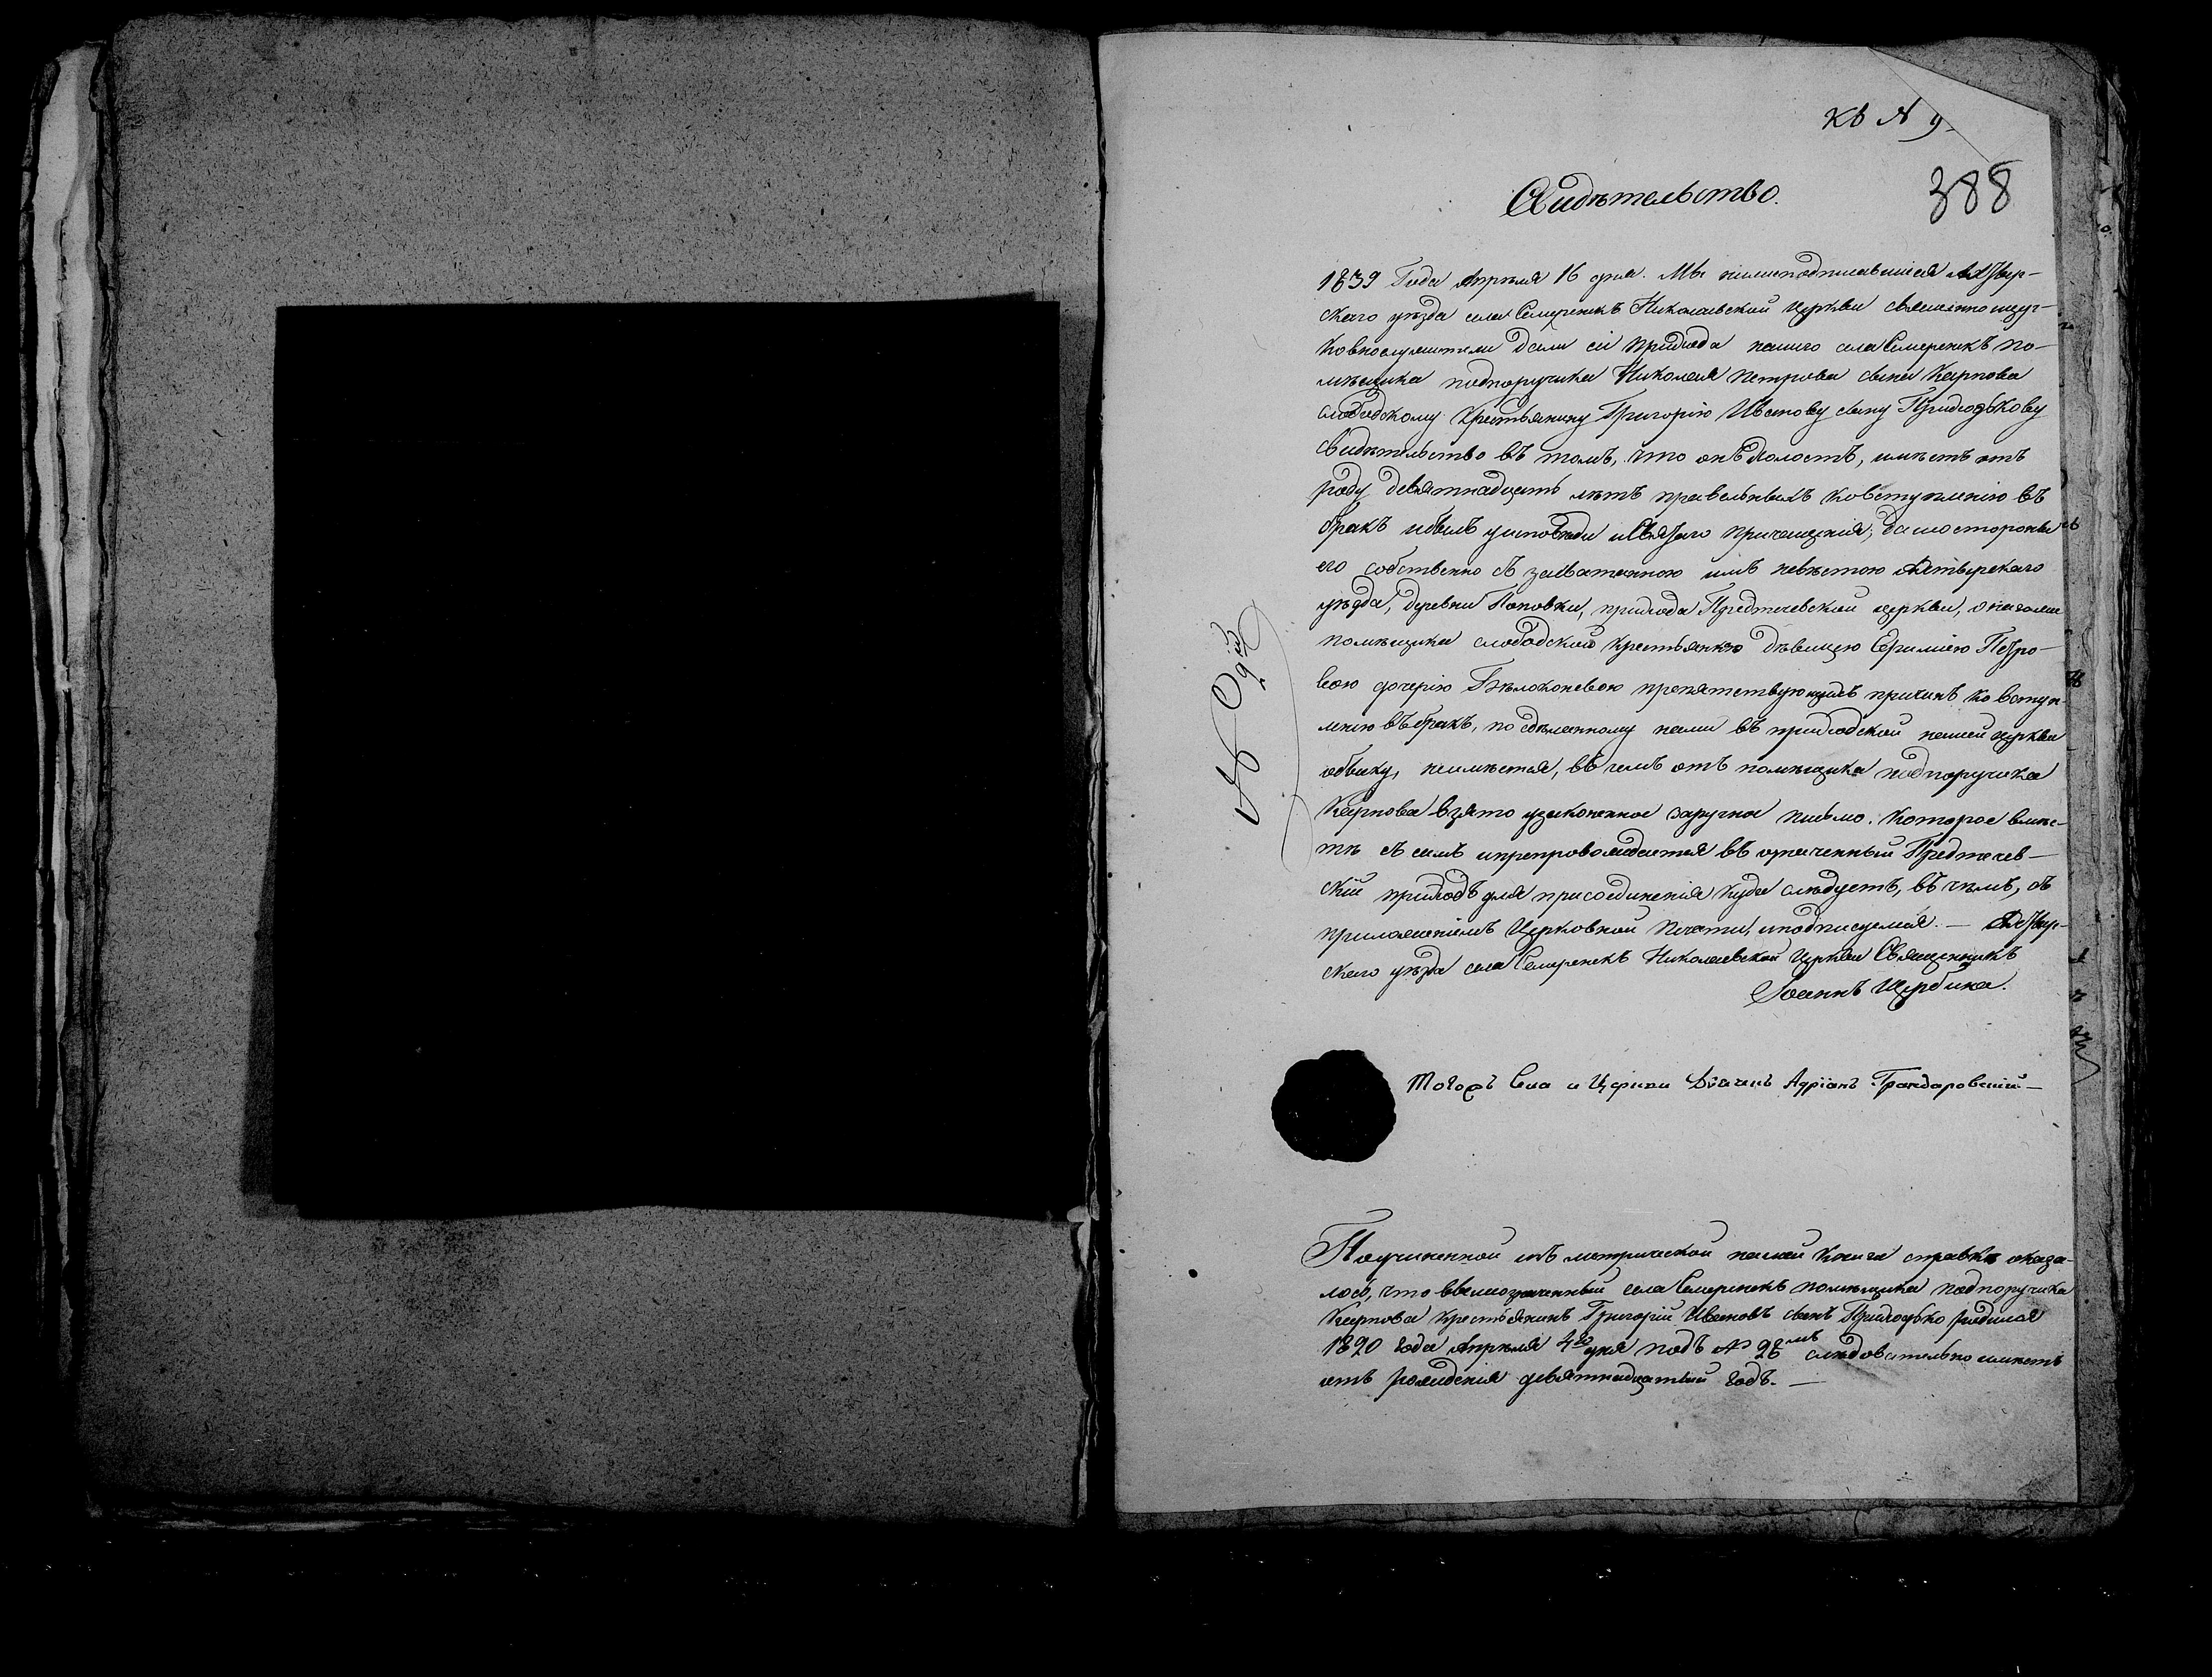 Къ № 9
388
Свидѣтельство.
1839 Года Апрѣля 16 дня. Мы нижеподписавшіеся Ахтыр-
скаго уѣзда села Семеренкъ Николаевской Церкви священноицер-
ковнослужители дали сіе прихода нашего села Семеренкъ по-
мѣщика подпоручика Николая Петрова сына Карпова
слободскому крестьянину Григорію Иванову сыну Приходькову
Свидѣтельство въ томъ, что онъ холостъ, имѣетъ отъ
роду девятнадцать лѣтъ правельныхъ ковступленію въ
бракъ ибылъ уисповѣди иСвятаго причащенія;
его собственно съ засватанною имъ невѣстою Ахтырскаго
уѣзда, деревни Поповки, прихода Предтечевской церкви, оногожъ
помѣщика слободскою крестьянкою дѣвицею Ефиміею Петро-
вою дочерію Бѣлоконевою препятствующихъ причинъ ко вступ-
ленію въ бракъ, по сдѣланному нами въ приходской нашей церкви
обыску, неимѣется, въ чемъ отъ помѣщика подпоручика
Карпова взято узаконенное заручное письмо. которое вмѣс-
тѣ съ симъ ипрепровождается въ означенный Предтечев-
скій приходъ для присоединенія куда слѣдуетъ, въ чемъ, съ
приложеніемъ Церковной Печати, иподписуемся. — Ахтыр-
скаго уѣзда села Семеренкъ Николаевской Церкви Священникъ
Іоаннъ Щербина.
№ 9й
Тогожъ Села и Церкви Дьячекъ Адріанъ
Поучиненной изъ метрической нашей книги справкѣ оказа-
лось, что вышеозначенный села Семеренкъ помѣщика подпоручика
Карпова крестьянинъ Григорій Ивановъ сынъ Приходько родился
1820 года Апрѣля 4го дня подъ № 28мъ слѣдовательно имѣетъ
отъ рожденія девятнадцатый годъ. —